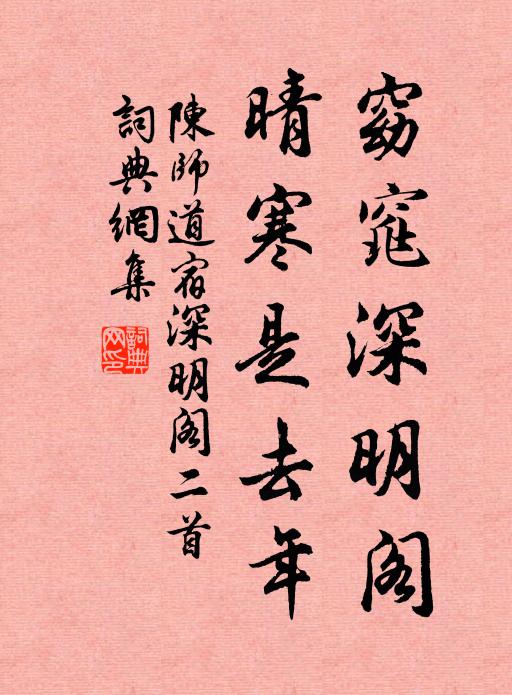 窈窕深明阁
晴寒是去年
陳師道宿深明阁二首
詞典網集
詞典
网印